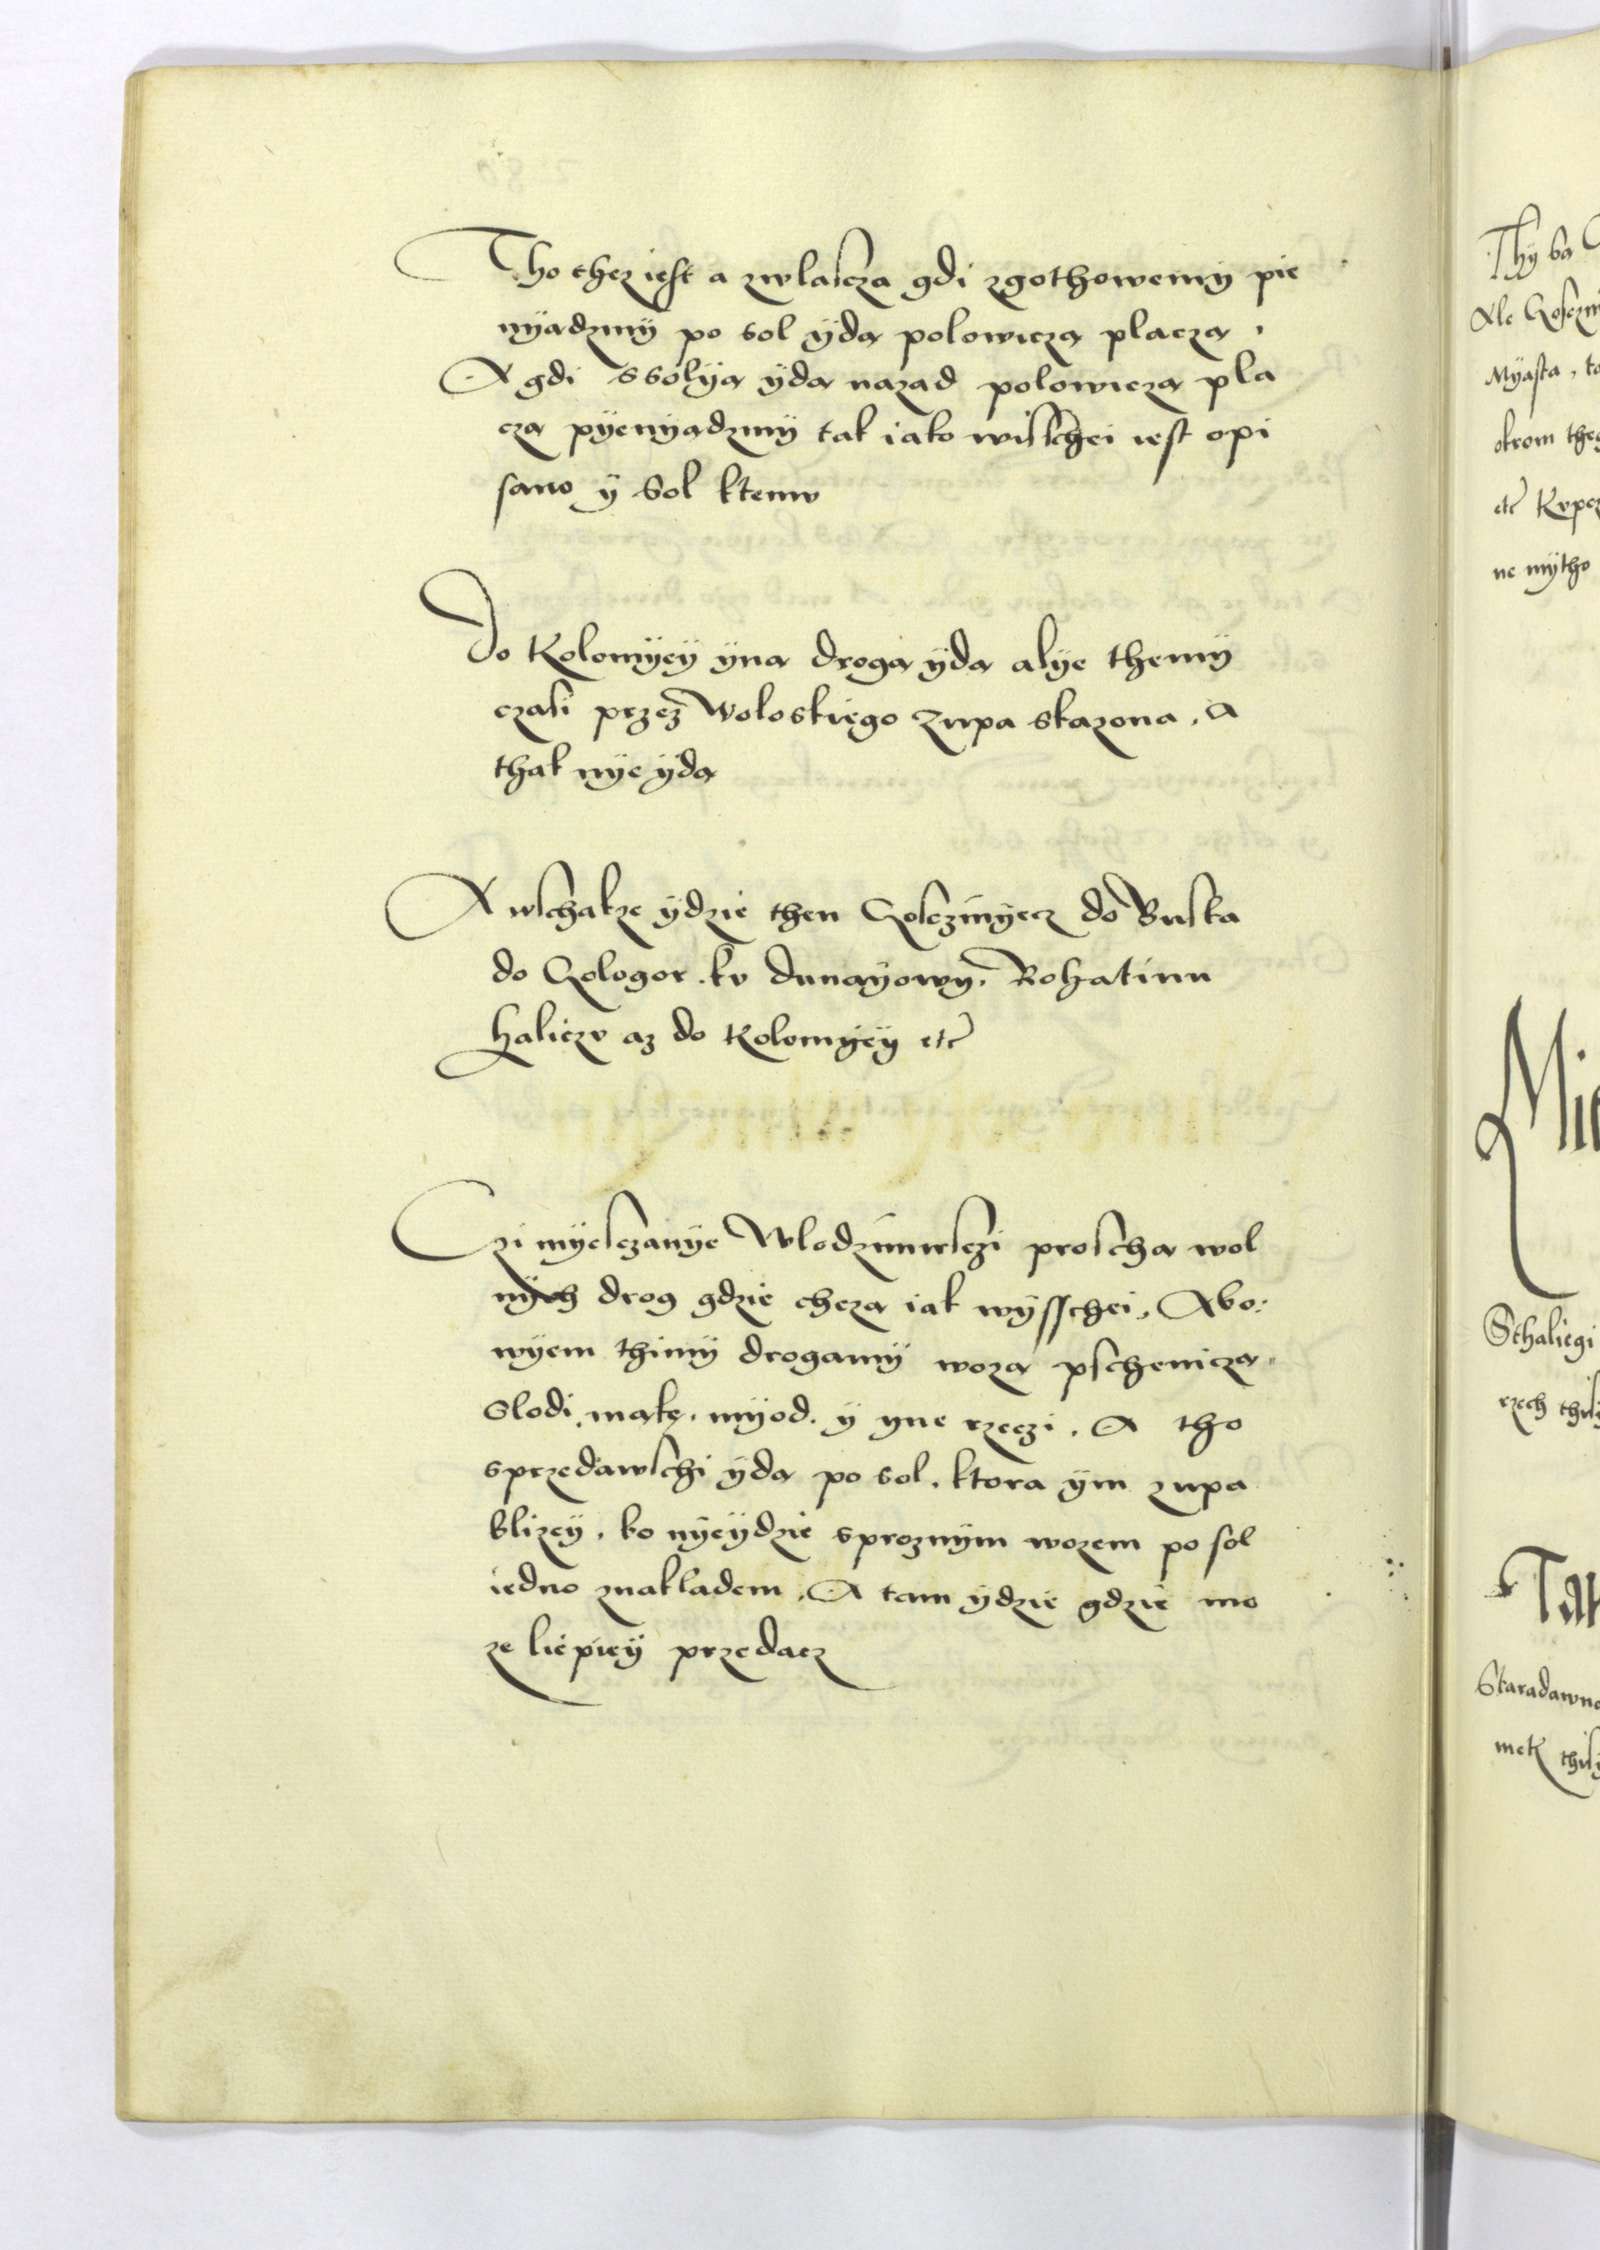 Tho thez iest a zwlascza gdi zgothowemy pie
nyadzmy po sol yda polowicza placza,
A gdi ssolya yda nazad polowicza pla
cza pyenyadzmy tak iako wisschei iest opi
sano y sol ktemv
Do Kolomyey yna droga yda alye themy
czasi przez Woloskiego zupa skazona, A
thak nye yda
A wschakze ydzie then Gosczinyecz do Buska
do Gologor. kv Dunayowy, Rohatinu
Haliczv az do Kolomyey etc
Czi myesczanye Wlodzimirsczi proscha wol
nych drog gdzie chcza iak wysschei, Abo:
wyem thimy drogamy woza pschenicza,
Slodi, make, myod, y yne rzeczi, A tho
sprzedawschi yda po sol, ktora ym zupa
blizey, bo nyeydzie sproznym wozem po sol
iedno znakladem, A tam ydzie gdzie mo
ze liepiey przedacz
Thy ba
Ale Gosczin
Myasta, ta
okrom theg
etc Kvpcz
ne mytho
Mie
Sthaliegi
rzech
Tar
Staradawna